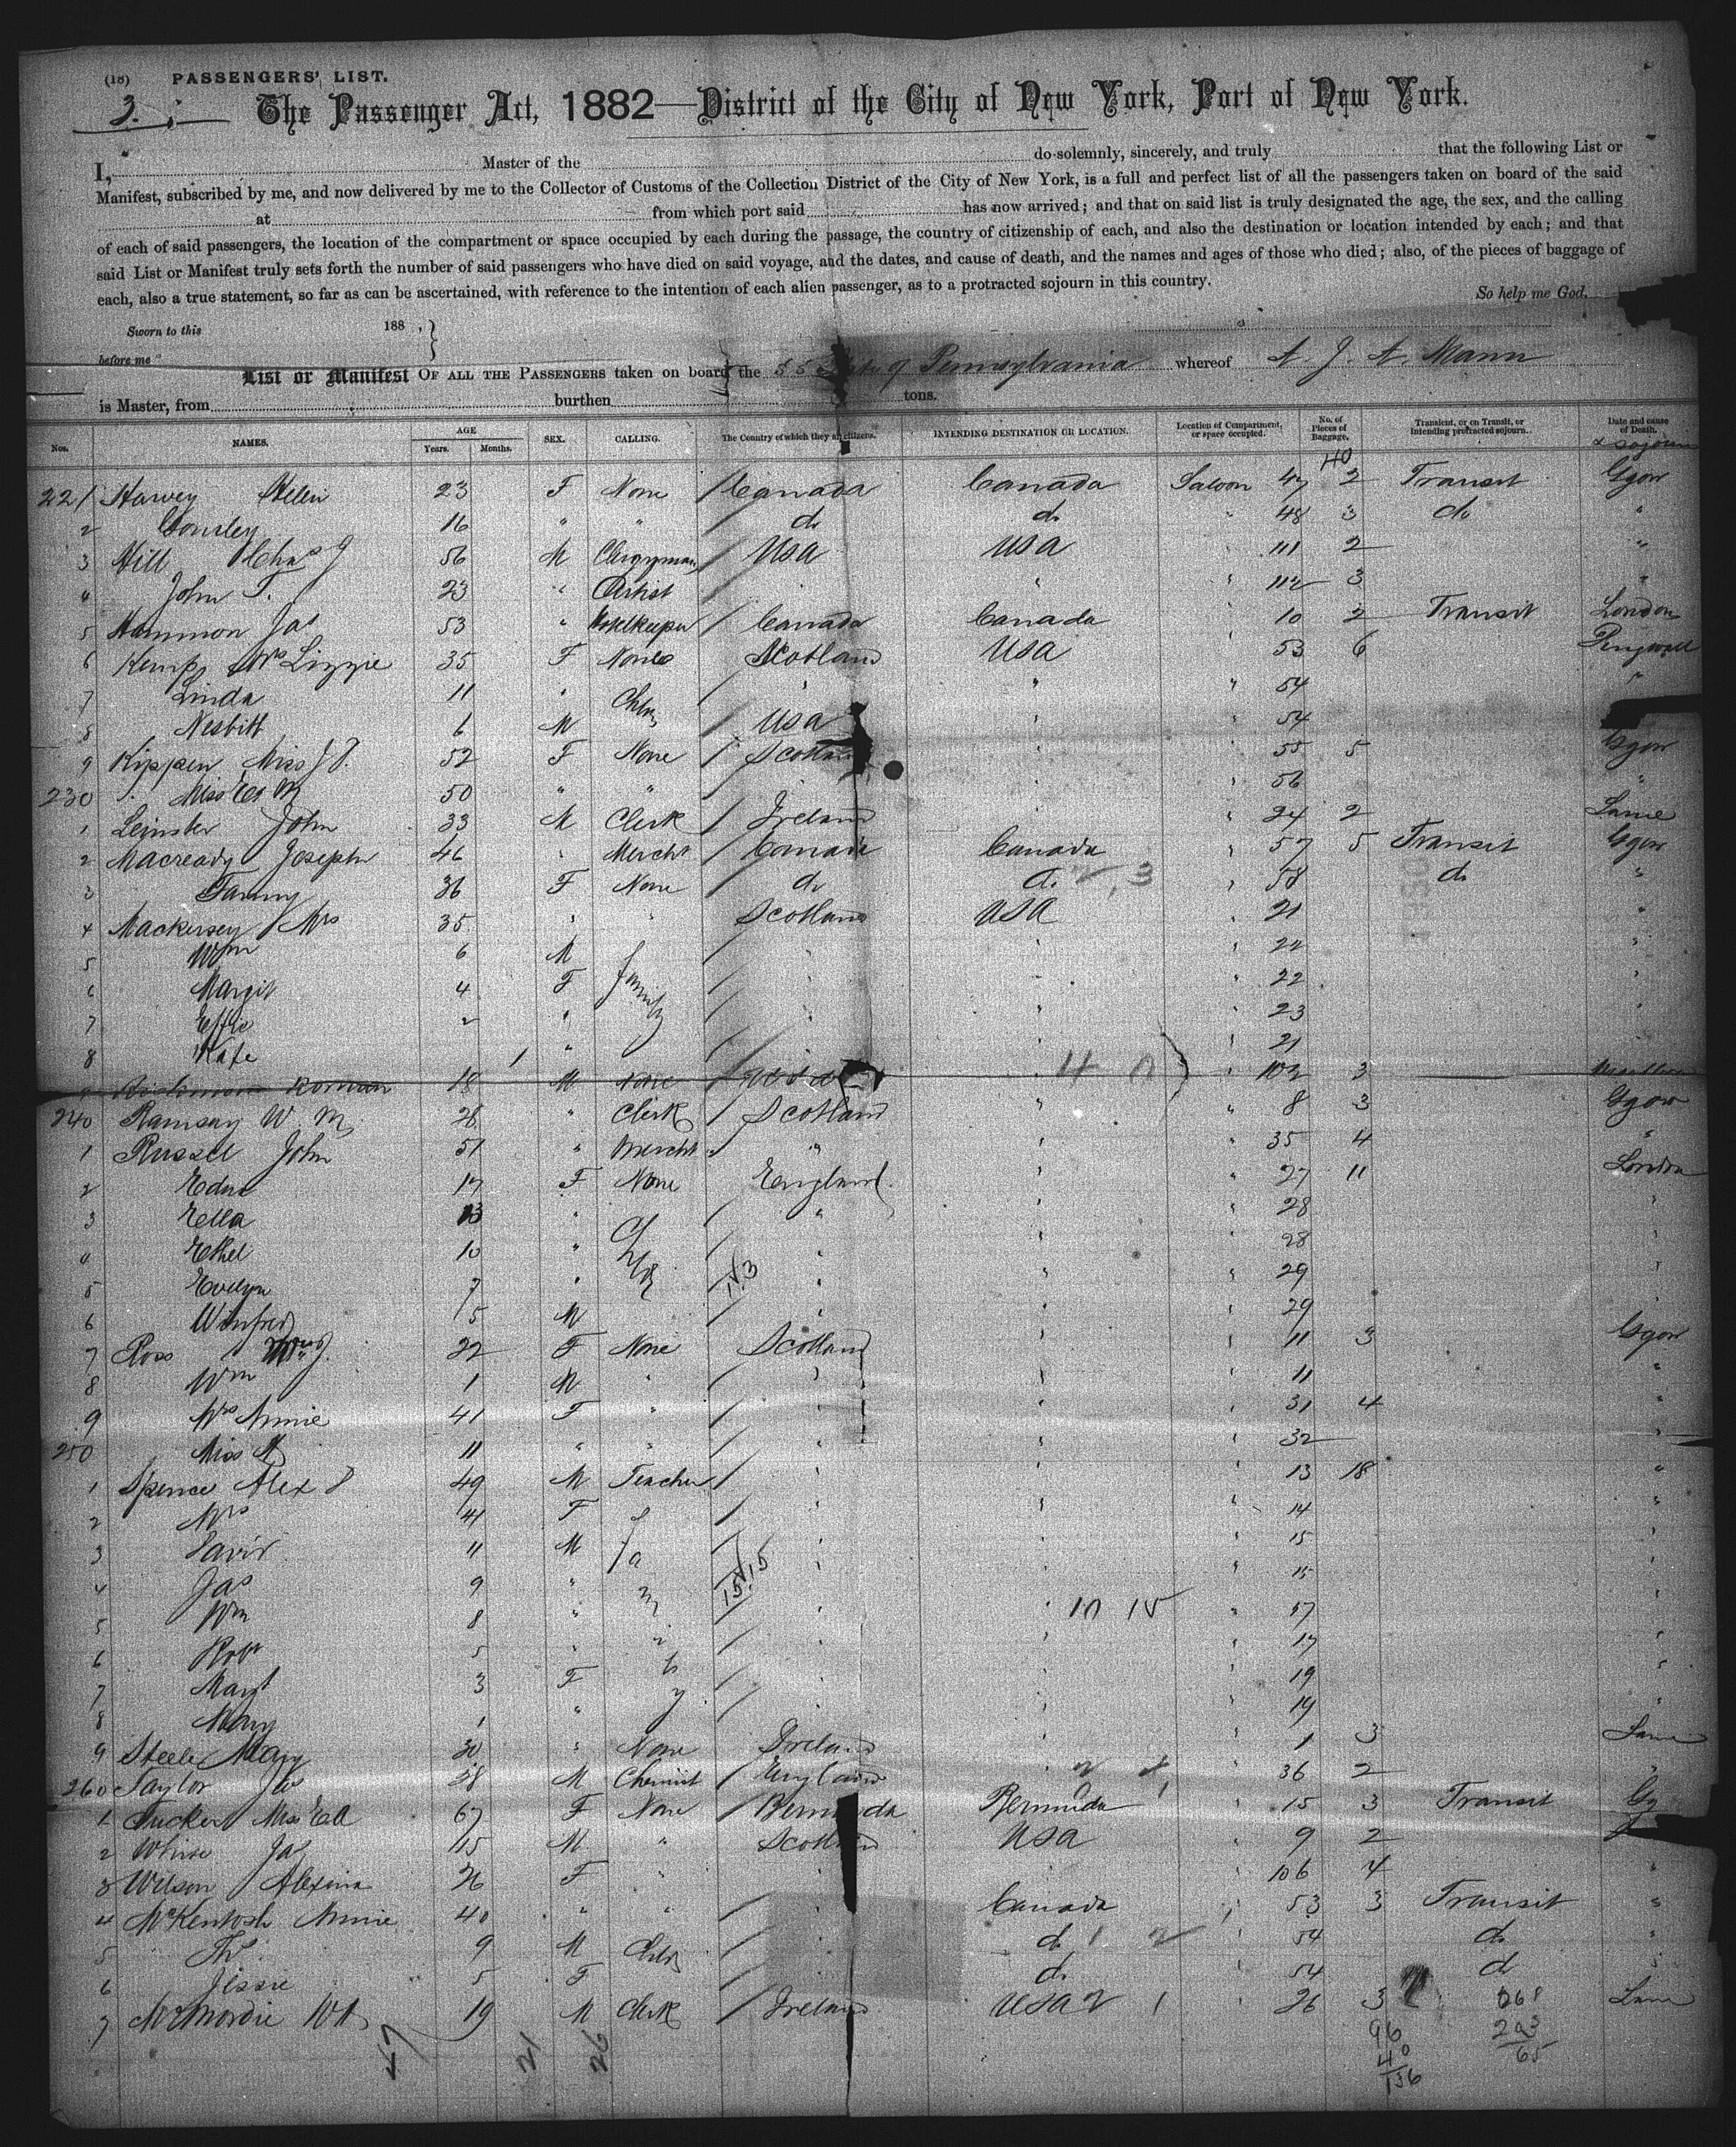 (18) PASSENGERS' LIST.
3.
The Passenger Act, 1882—District of the City of New York, Port of New York.
I, Master of the do solemnly, sincerely, and truly that the following List or
Manifest, subscribed by me, and now delivered by me to the Collector of Customs of the Collection District of the City of New York, is a full and perfect list of all the passengers taken on board of the said
at from which port said has now arrived; and that on said list is truly designated the age, the sex, and the calling
of each of said passengers, the location of the compartment or space occupied by each during the passage, the country of citizenship of each, and also the destination or location intended by each; and that
said List or Manifest truly sets forth the number of said passengers who have died on said voyage, and the dates, and cause of death, and the names and ages of those who died; also, of the pieces of baggage of
each, also a true statement, so far as can be ascertained, with reference to the intention of each alien passenger, as to a protracted sojourn in this country.
So help me God.
Sworn to this 188 ,
before me
List or Manifest OF ALL THE PASSENGERS taken on board the SS State of Pennsylvania whereof A. J. A. Mann
is Master, from burthen tons.
Nos. NAMES. AGE Years. Months. SEX. CALLING. The Country of which they are citizens. INTENDING DESTINATION OR LOCATION. Location of Compartment, or space occupied. No. of Pieces of Baggage. Transient, or on Transit, or intending protracted sojourn. Date and cause of Death.
& sojourn
40
221 Harvey Helen 23 F None / Canada Canada Saloon 47 2 Transit Ggow
2 16 " " / do do " 48 3 do "
3 Hill Chas J 56 M Clergyman / USA USA " 111 2 "
4 John T. 23 " Artist / " " " 112 3 "
5 Hammon Jas 53 " Hotelkeeper / Canada Canada " 10 2 Transit London
6 Kemp Mrs Lizzie 35 F None Scotland USA 53 6
7 Linda 11 " Chn / " " " 54 "
8 Nesbitt 6 M / USA " 54
9 Kippen Miss J P. 52 F None / Scotland " " 55 5 Ggow
230 Miss 50 " " / " 56 "
1 Leinster John 33 M Clerk / Ireland " 24 2 Larne
2 Macready Joseph 46 " Mercht / Canada Canada " 57 5 Transit Ggow
3 Fanny 36 F None / do do 2, 3 " 58 do "
4 Mackersey Mrs 35 " " Scotland USA " 21 "
5 Wm 6 M Family / " " " 22 "
6 Margt 4 F / " " " 22 "
7 Effie 2 " / " " " 23 "
8 Kate 1 " / " " " 21
9 Roman 18 M None / 4 0 102 3
240 Ramsay W. M. 28 " Clerk / Scotland " " 8 3 Ggow
1 Russell John 51 " Mercht " " " 35 4 "
2 17 F None England " " 27 11 London
3 Ella 13 " / " " " 28 "
4 Ethel 10 " Chn / " " 28 "
5 Evelyn 7 " 1.3 " " " 29 "
6 Winfred 5 M / " " " 29 "
7 Ross 22 F None Scotland " " 11 3 Ggow
8 Wm 1 M " / " " " 11 "
9 Mrs Annie 41 F " / " " " 31 4 "
250 Miss M 11 " " / " " " 32 "
1 Spence Alex 49 M Teacher / " " " 13 18 "
2 Mrs 41 F Family / " " " 14 "
3 David 11 M / " " " 15 "
4 Jas 9 " 15.15 " " " 15 "
5 Wm 8 " " " 10 15 " 17 "
6 Robt 5 " / " " " 17 "
7 Margt 3 F / " " " 19 "
8 Mary 1 " / " " " 19 "
9 Steele Mary 30 " None Ireland " " 1 3 Larne
260 Taylor 28 M Chemist / England " " 36 2 "
1 Tucker Miss 67 F None / Bermuda Bermuda 1 " 15 3 Transit Gg
2 White Jas 15 M " Scotland USA " 9 2
3 Wilson Alexina 26 F " " 106 4 "
4 McKentosh Annie 40 " " / " Canada " 53 3 Transit "
5 9 M Chn / " do 1 2 " 54 do "
6 Jessie 5 F / " do " 54 do "
7 McMordie W A 19 M Clerk / Ireland USA 2 1 " 26 3 Larne
47 21 26
96
40
136
268
203
65